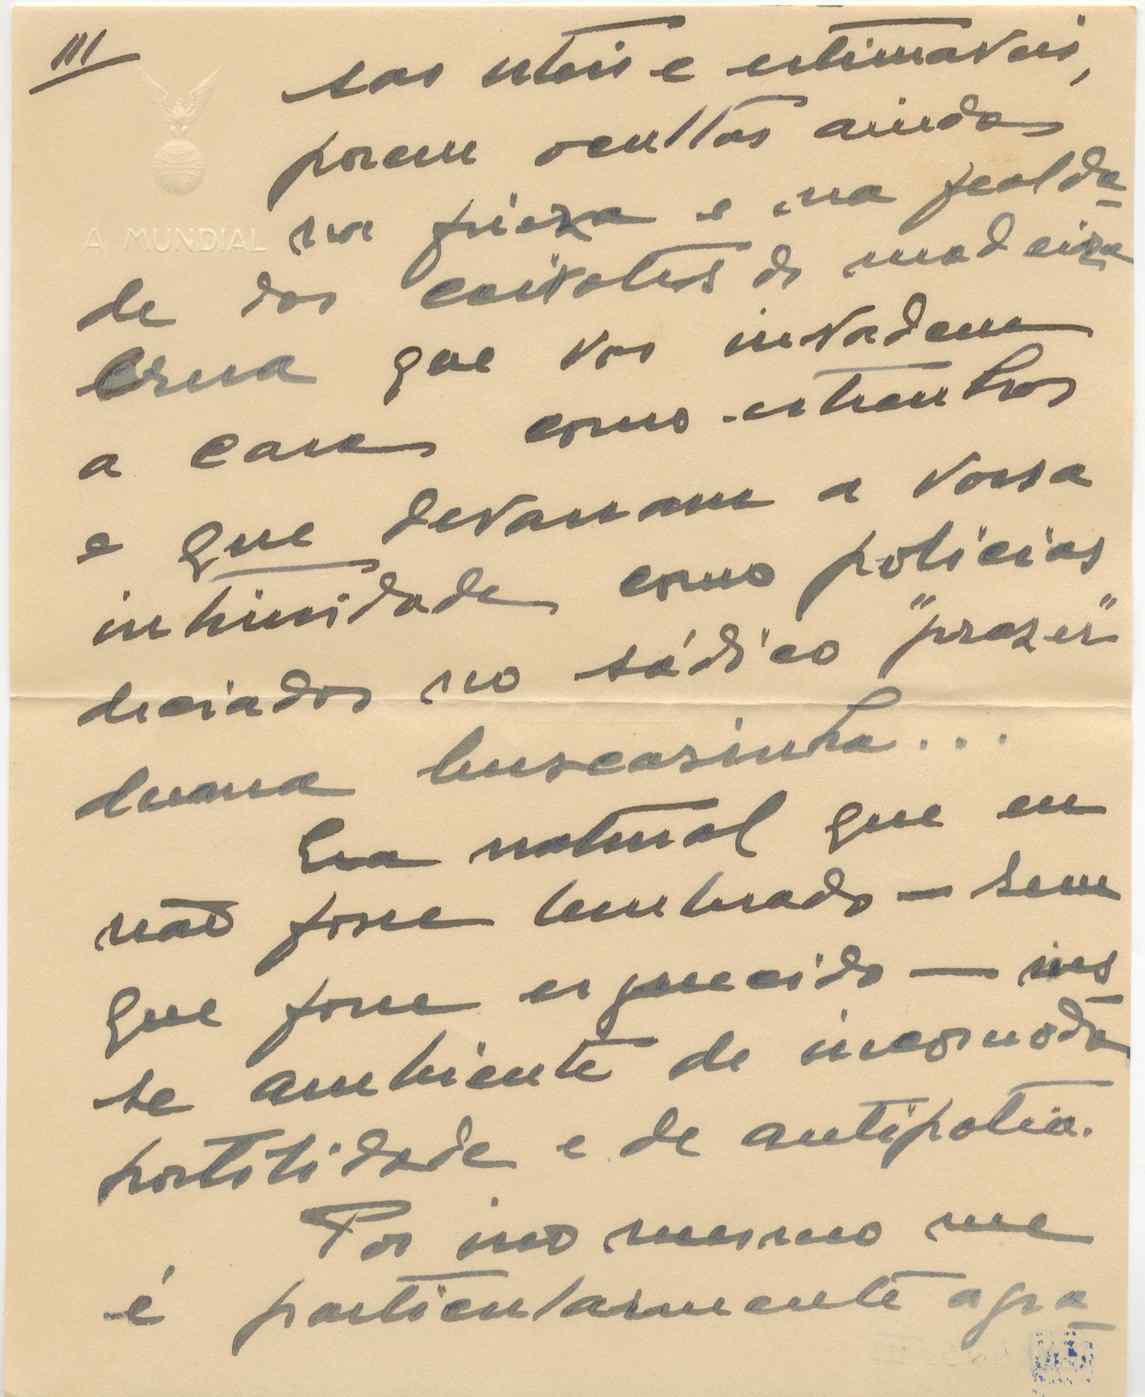 III
A MUNDIAL
sas uteis e estimaveis,
porem ocultas ainda
na frieza e na fealda-
de dos caixotes de madeira
crua que vos invadem
a casa como estranhos
e que devassam a vossa
intimidade como policias
viciados no sádico "prazer"
duma buscasinha...
Era natural que eu
não fosse lembrado — sem
que fosse esquecido — nes
se ambiente de incomoda
hostilidade e de antipatia.
Por isso mesmo me
é particularmente agra-